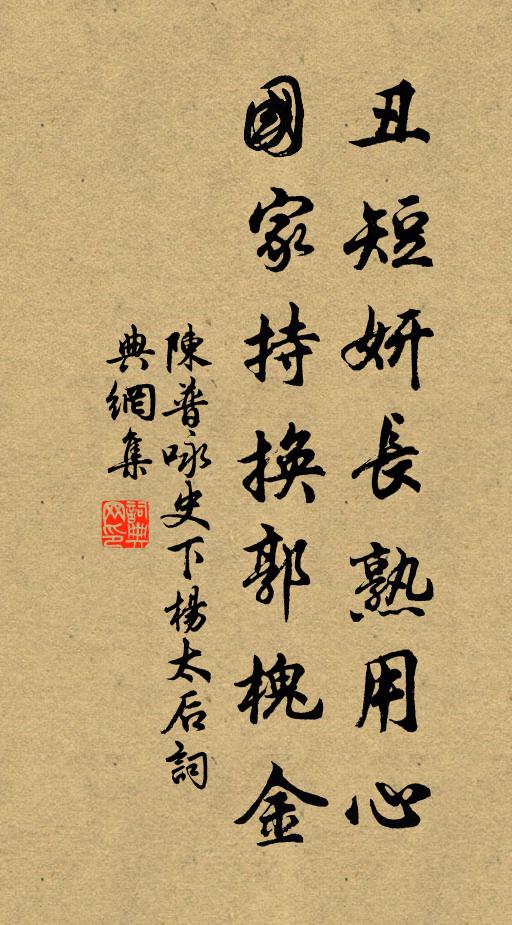 丑短妍長熟用心
國家持換郭槐金
陳普咏史下楊太后詞
典網集
詞典網印